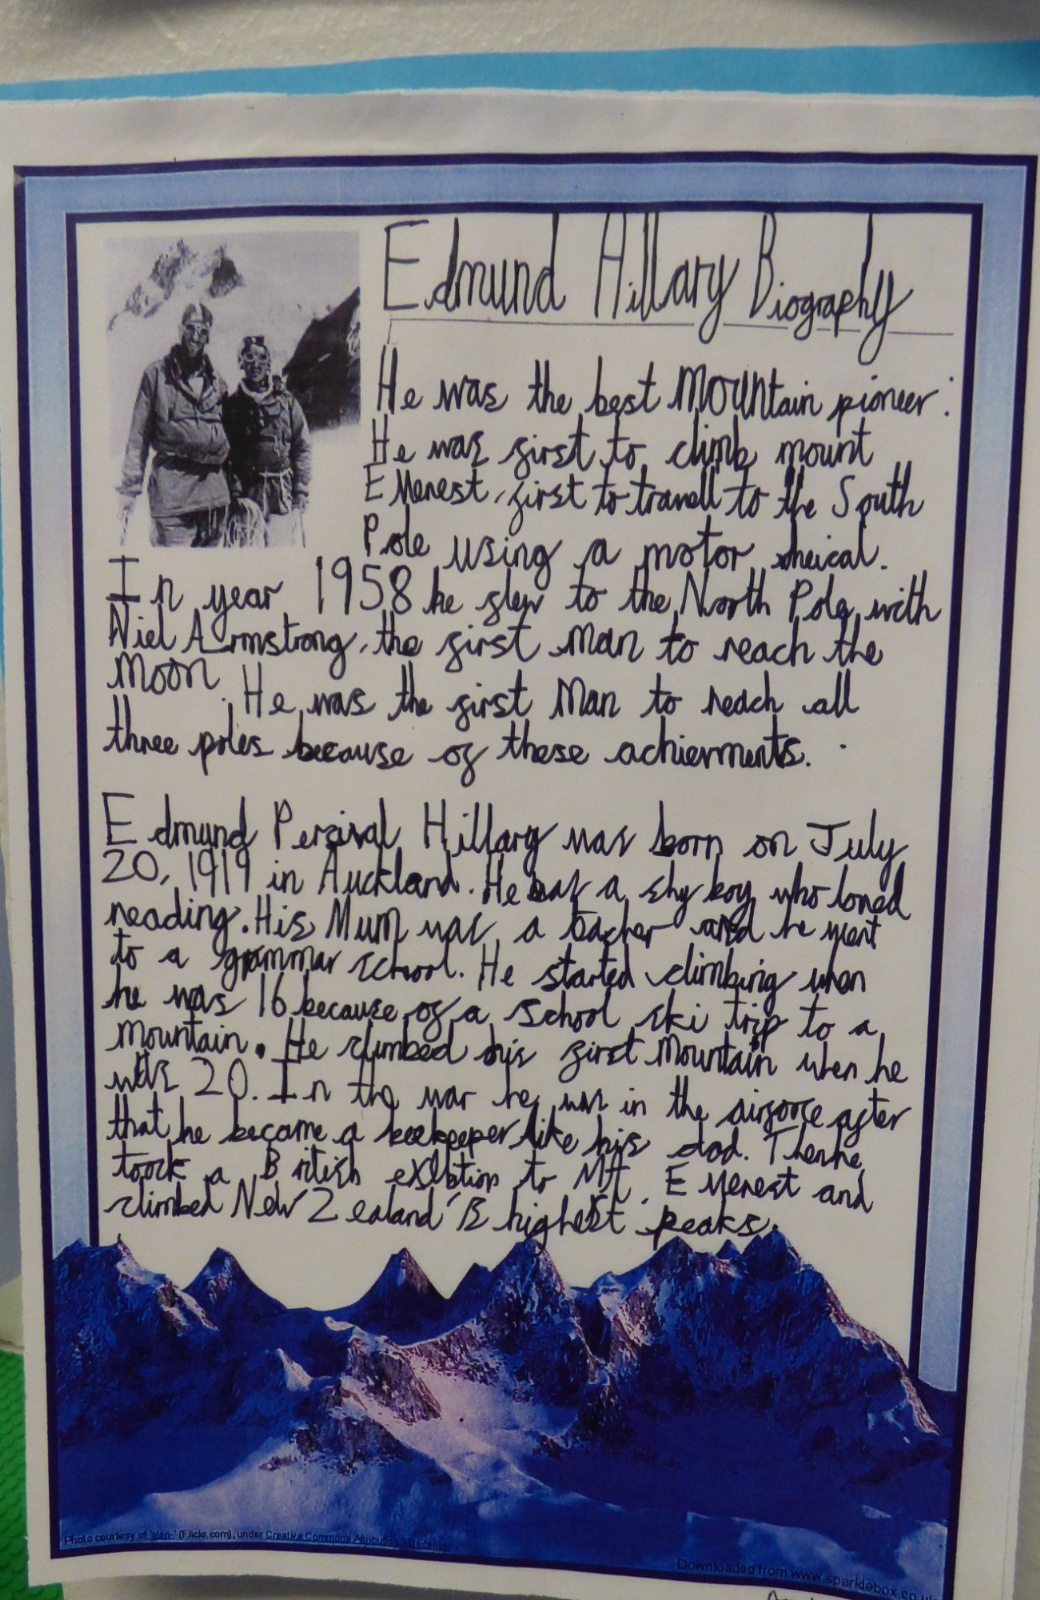 Edmund Hillary Biography
He was the best mountain pioneer.
He was first to climb mount
Everest, first to travell to the South
Pole using a motor vheical.
In year 1958 he flew to the North Pole with
Niel Armstrong, the first man to reach the
moon. He was the first man to reach all
three poles because of these achievments.
Edmund Percival Hillary was born on July
20, 1919 in Auckland. He was a shy boy who loved
reading. His Mum was a teacher and he went
to a grammar school. He started climbing when
he was 16 because of a school ski trip to a
mountain. He climbed his first mountain when he
was 20. In the war he was in the airforce after
that he became a beekeeper like his dad. Then he
toock a British exibtion to Mt. Everest and
climbed New Zealand's highest peaks.
Photo courtesy of (Flickr.com), under Creative Commons
Downloaded from www.sparklebox.co.uk